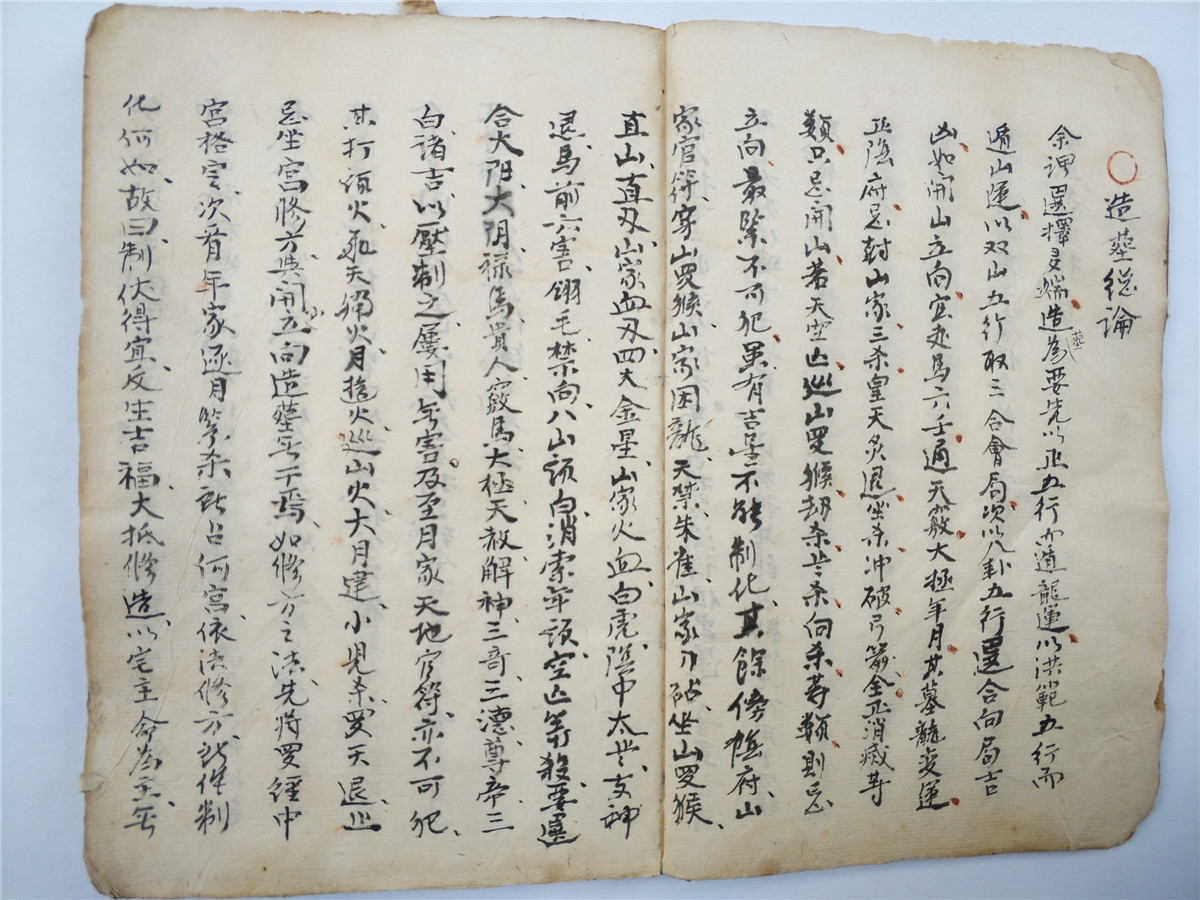 造葬総論
余谓選擇多端造葬为要先以正五行而遁龍運以洪範五行而
遁山運以双山五行取三合會局次以八卦五行選合向局吉
凶如開山立向宜走馬六壬通天竅大極年月其墓龍变運
正隂府忌尅山家三杀皇天炙退坐杀冲破弓箭金正消滅䓁
類只忌開山若天空亡巡山罗猴刼杀灾杀向杀䓁類則忌
立向最緊不可犯虽有吉星不能制化其餘傍隂府山
家官符穿山罗猴山家困龍天禁朱雀山家刀砧坐山罗猴
直山直刃山家血刃四大金星山家火血白虎隂中太岁支神
退馬前六害翎毛禁向八山頭白消索年頭空亡䓁殺要選
合太阳太阴禄馬貴人竅馬太極天赦解神三奇三德尊帝三
白诸吉以壓制之屡用无害及至月家天地官符亦不可犯
其打頭火飛天獨火月遊火巡山火大月建小児杀受天退此
忌坐宫修方與開山立向造葬无干焉如修方之法先将罗經中
宫格定次看年家逐月䓁杀訖占何宫依法修方訖作制
化何如故曰制伏得宜反生吉福大抵修造以宅主命为主无